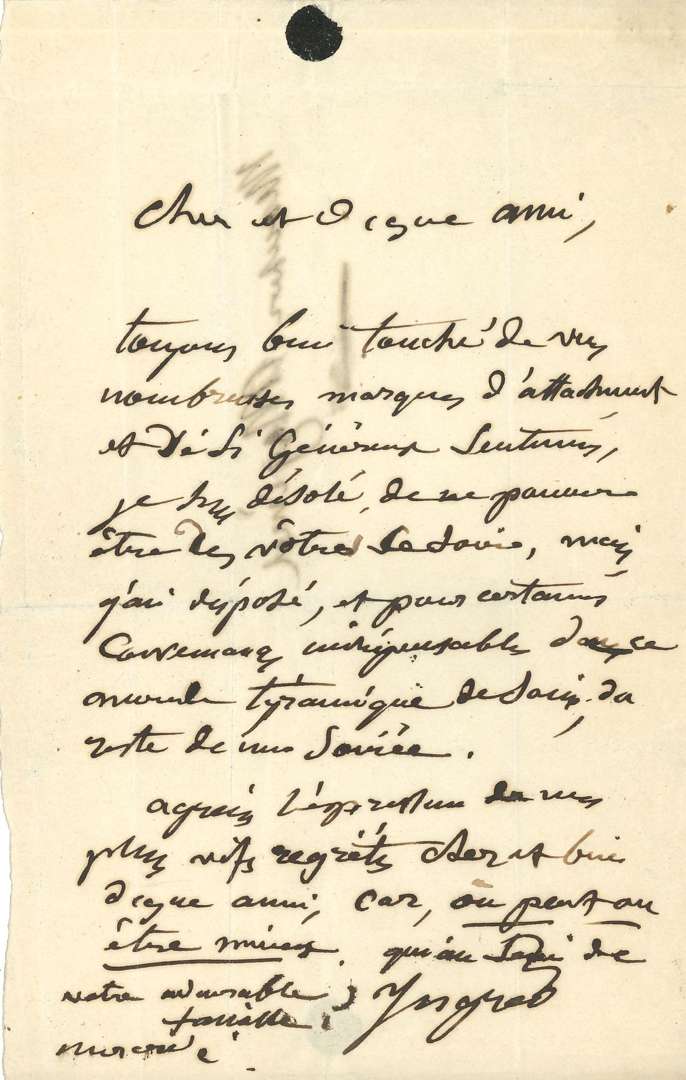 Cher et digne ami,
toujours bien touché de vos
nombreuses marques d'attachement
et dé si Généreux Sentimens,
je suis désolé, de ne pouvoir
être des vôtres ce Soir, mais
j'ai disposé, et pour certaines
Convenances indispensables dans ce
monde tyrannique de Paris, du
reste de ma Soirée.
agréez l'expression de mes
plus vifs regréts cher et bien
digne ami, car, où peut on
être mieux qu'au Sein de
votre admirable
famille
Ingres